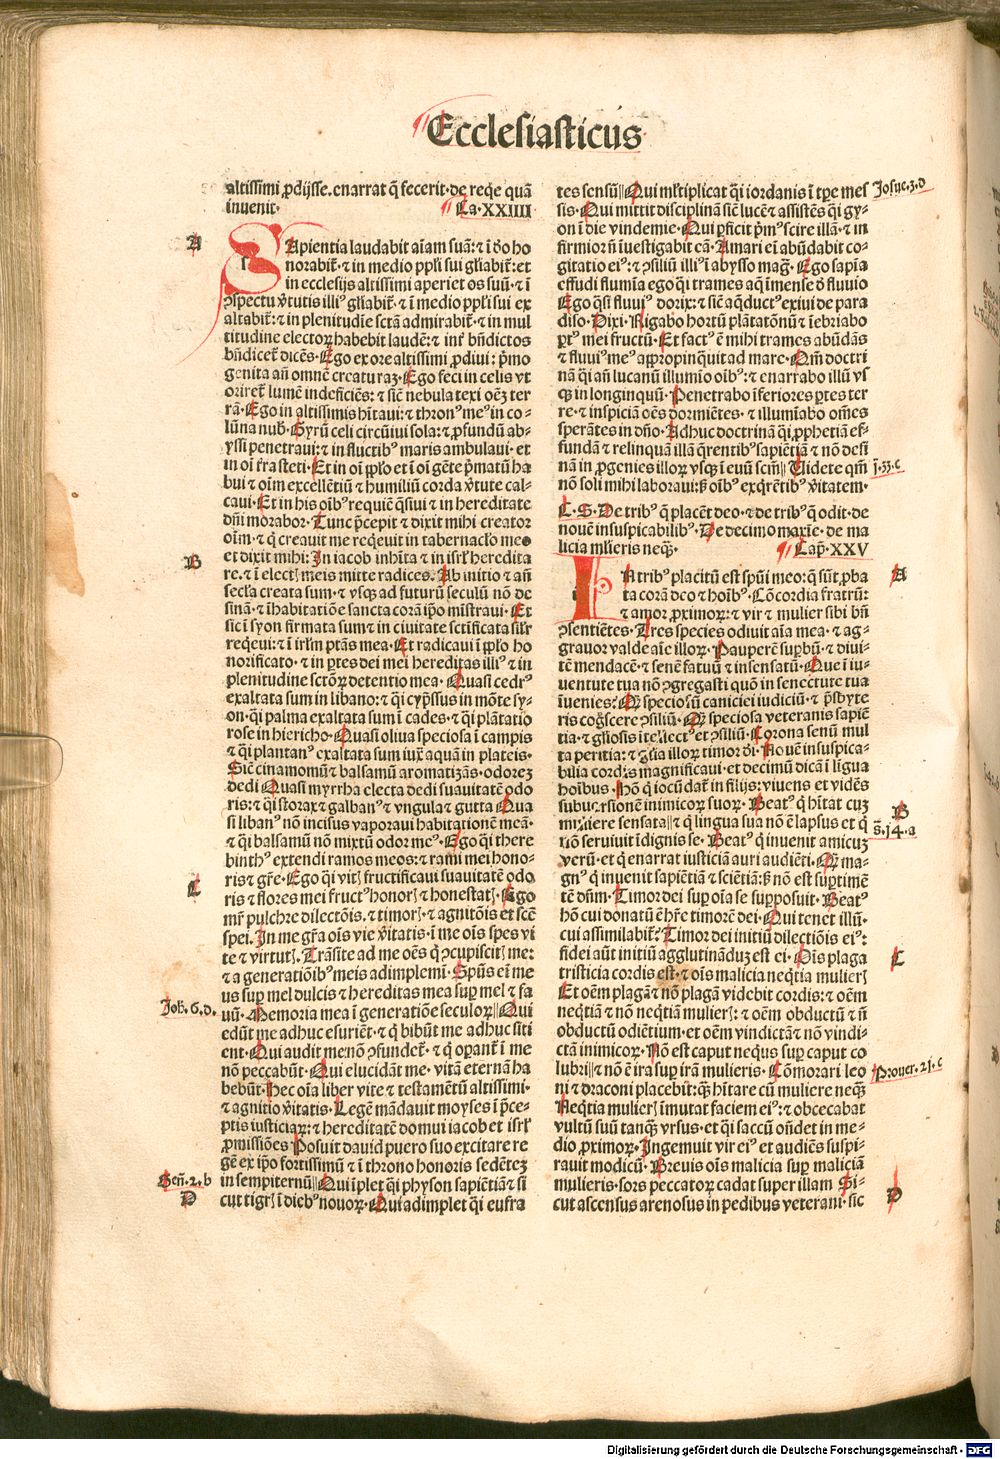 Ecclesiasticus
altissimi ꝓdijsse. enarrat q̄ fecerit. de req̄e quā
inuenit. Ca. XXIIII
A
SApientia laudabit aīam suā: ⁊ ī dō ho
norabit᷑. ⁊ in medio ppl̄i sui gl̄iabit᷑: et
in ecclesijs altissimi aperiet os suū. ⁊ ī
ꝯspectu v̄tutis illiꝰ gl̄iabit᷑. ⁊ ī medio ppl̄i sui ex
altabit᷑: ⁊ in plenitudīe sctā admirabit᷑. ⁊ in mul
titudine electoꝝ habebit laudē: ⁊ int᷑ bn̄dictos
bn̄dicet᷑ dicēs. Ego ex ore altissimi ꝓdiui: p̄mo
genita an̄ omnē creaturaꝫ. Ego feci in celis vt
oriret᷑ lumē indeficiēs: ⁊ sic̄ nebula texi oēꝫ ter
rā. Ego in altissimis hītaui: ⁊ thronꝰ meꝰ in co-
lūna nub̄. Gyrū celi circūiui sola: ⁊ ꝓfundū ab-
yssi penetraui: ⁊ in fluctibꝰ maris ambulaui. et
in oī t᷑ra steti. Et in oī pplo et ī oī gēte p̄matū ha
bui ⁊ oīm excellētiū ⁊ humiliū corda v̄tute cal-
caui. Et in his oībꝰ requiē q̄siui ⁊ in hereditate
dn̄i morabor. Tunc p̄cepit ⁊ dixit mihi creator
oīm. ⁊ q̄ creauit me req̄euit in tabernacl̄o meo
B
et dixit mihi: In iacob inhīta ⁊ in isrl̄ heredita
re. ⁊ ī electꝭ meis mitte radices. Ab initio ⁊ an̄
secl̄a creata sum. ⁊ vsqꝫ ad futurū seculū nō de
sinā. ⁊ ī habitatiōe sancta corā ip̄o mīstraui. Et
sic ī syon firmata sum ⁊ in ciuitate sctīficata sil̄r
req̄eui: ⁊ ī irlm̄ ptās mea. Et radicaui ī ppl̄o ho
norificato. ⁊ in ꝑtes dei mei hereditas illiꝰ ⁊ in
plenitudine sctōꝝ detentio mea. Quasi cedrꝰ
exaltata sum in libano: ⁊ q̄i cyp̄ssus in mōte sy-
on. q̄i palma exaltata sum ī cades. ⁊ q̄i plātatio
rose in hiericho. Quasi oliua speciosa ī campis
⁊ q̄i plantanꝰ exaltata sum iuxͣ aquā in plateis.
Sic̄ cinamomū ⁊ balsamū aromatizās. odoreꝫ
dedi Quasi myrrha electa dedi suauitatē odo
ris: ⁊ q̄i storax ⁊ galbanꝰ ⁊ vngula ⁊ gutta Qua
si libanꝰ nō incisus vaporaui habitationē meā.
⁊ q̄i balsamū nō mixtū odoꝛ meꝰ. Ego q̄i there
binthꝰ extendi ramos meos: ⁊ rami mei hono-
C
ris ⁊ gr̄e. Ego q̄i vitꝭ fructificaui suauitatē odo
ris ⁊ flores mei fructꝰ honorꝭ ⁊ honestatꝭ. Ego
mr̄ pulchre dilectōis. ⁊ timorꝭ. ⁊ agnitōis et scē
spei. In me gr̄a oīs vie v̄itatis. ī me oīs spes vi
te ⁊ virtutꝭ. Trāsite ad me oēs q̄ ꝯcupiscitꝭ me:
⁊ a generatiōībꝰ meis adimplemī. Spūs eī me
us suꝑ mel dulcis ⁊ hereditas mea suꝑ mel ⁊ fa
Joh. 6. d.
uū. Memoria mea ī generatiōe seculoꝝ Qui
edūt me adhuc esuriēt. ⁊ q̄ bibūt me adhuc siti
ent. Qui audit me nō ꝯfundet᷑. ⁊ q̄ oꝑant᷑ ī me
nō peccabūt. Qui elucidāt me. vitā eternā ha
bebūt. Hec oīa liber vite ⁊ testamētū altissimi.
⁊ agnitio v̄itatis. Legē mādauit moyses ī p̄ce-
ptis iusticiaꝝ: ⁊ hereditatē domui iacob et isrl̄
ꝓmissiōes Posuit dauid puero suo excitare re
gē ex ip̄o fortissimū ⁊ ī throno honoris sedēteꝫ
Gen̄. 2. b
in sempiternū Qui īplet q̄i physon sapiētiā ⁊ si
D
cut tigrꝭ ī diebꝰ nouoꝝ. Qui adimplet q̄i eufra
tes sensū Qui ml̄tiplicat q̄i iordanis ī tꝑe mes
Josue. 3. d
sis. Qui mittit disciplinā sic̄ lucē ⁊ assistēs q̄i gy-
on ī die vindemie. Qui ꝑficit p̄mꝰ scire illā. ⁊ in
firmior nō īuestigabit eā. A mari eī abūdabit co-
gitatio eiꝰ: ⁊ ꝯsiliū illiꝰ ī abysso maḡ. Ego sapīa
effudi flumīa ego q̄i trames aq̄ īmense d̄ fluuio
Ego q̄si fluuiꝰ dorix: ⁊ sic̄ aq̄ductꝰ exiui de para
diso. Dixi. Rigabo hortū plātatōnū ⁊ īebriabo
ꝑtꝰ mei fructū. Et factꝰ ē mihi trames abūdās
⁊ fluuiꝰ meꝰ appropinq̄uit ad mare. Qm̄ doctri
nā q̄i an̄ lucanū illumīo oībꝰ: ⁊ enarrabo illū vs
qꝫ in longinquū. Penetrabo īferiores ꝑtes ter
re. ⁊ inspiciā oēs dormiētes. ⁊ illumīabo om̄es
sperātes in dn̄o. Adhuc doctrinā q̄i ꝓphetiā ef-
fundā ⁊ relinquā illā q̄rentibꝰ sapiētiā ⁊ nō desī
nā in ꝓgenies illoꝝ vsqꝫ ī euū scm̄ Uidete qm̄
j. 33. c
nō soli mihi laboraui: sꝫ oībꝰ exq̄rētibꝰ v̄itatem.
C. S. De tribꝰ q̄ placēt deo. ⁊ de tribꝰ q̄ odit. de
nouē insuspicabilibꝰ. De decimo maxīe. de ma
licia ml̄ieris neqꝫ. Cap̄. XXV
A
IN tribꝰ placitū est spūi meo: q̄ sūt ꝓba
ta corā deo ⁊ hoībꝰ. Cōcordia fratrū:
⁊ amor ꝓximoꝝ: ⁊ vir ⁊ mulier sibi bn̄
ꝯsentiētes. Tres species odiuit aīa mea. ⁊ ag-
grauor valde aīe illoꝝ. Pauperē suꝑbū. ⁊ diui-
tē mendacē. ⁊ senē fatuū ⁊ insensatū. Que ī iu-
uentute tua nō ꝯgregasti quō in senectute tua
īuenies: Qꝫ speciosū caniciei iudiciū. ⁊ p̄sbyte
ris coḡscere ꝯsiliū. Qꝫ speciosa veteranis sapiē
tia. ⁊ gl̄iosis ītellectꝰ et ꝯsiliū. Corona senū mul
ta peritia: ⁊ gl̄ia illoꝝ timor dei. Nouē insuspica-
bilia cordis magnificaui. et decimū dicā ī ligua
hoībus. Hō q̄ iocūdat᷑ in filijs: viuens et vidēs
subuersionē inimicoꝝ suoꝝ. Beatꝰ q̄ hītat cuꝫ
B
muliere sensata ⁊ q̄ lingua sua nō ē lapsus et q̄
s̄. 14. a
nō seruiuit īdignis se. Beatꝰ q̄ inuenit amicuꝫ
verū. et q̄ enarrat iusticiā auri audiēti. Qꝫ ma-
gnꝰ q̄ inuenit sapiētiā ⁊ sciētiā: sꝫ nō est suꝑ timē
tē dn̄m. Timor dei suꝑ oīa se suꝑposuit. Beatꝰ
hō cui donatū ē hr̄e timorē dei. Qui tenet illū.
cui assimilabit᷑: Timor dei initiū dilectiōis eiꝰ:
C
fidei aūt initiū agglutināduꝫ est ei. Oīs plaga
tristicia cordis est. ⁊ oīs malicia neq̄tia mulierꝭ
Et oēm plagā ⁊ nō plagā videbit cordis: ⁊ oēm
neq̄tiā ⁊ nō neq̄tiā mulierꝭ: ⁊ oēm obductū ⁊ n̄
obductū odiētium. et oēm vindictā ⁊ nō vindi-
ctā inimicoꝝ. Nō est caput nequs suꝑ caput co
lubri ⁊ nō ē ira suꝑ irā mulieris. Cōmorari leo
Prouer. 21. c
ni ⁊ draconi placebit: qꝫ hītare cū muliere neqꝫ
Neq̄tia mulierꝭ īmutat faciem eiꝰ: ⁊ obcecabat
vultū suū tanqꝫ vrsus. et q̄i saccū on̄det in me-
dio ꝓximoꝝ. Ingemuit vir eiꝰ et audiēs suspi-
rauit modicū. Breuis oīs malicia suꝑ maliciā
mulieris. sors peccatoꝝ cadat super illam Si-
D
cut ascensus arenosus in pedibus veterani. sic
Digitalisierung gefördert durch die Deutsche Forschungsgemeinschaft - DFG